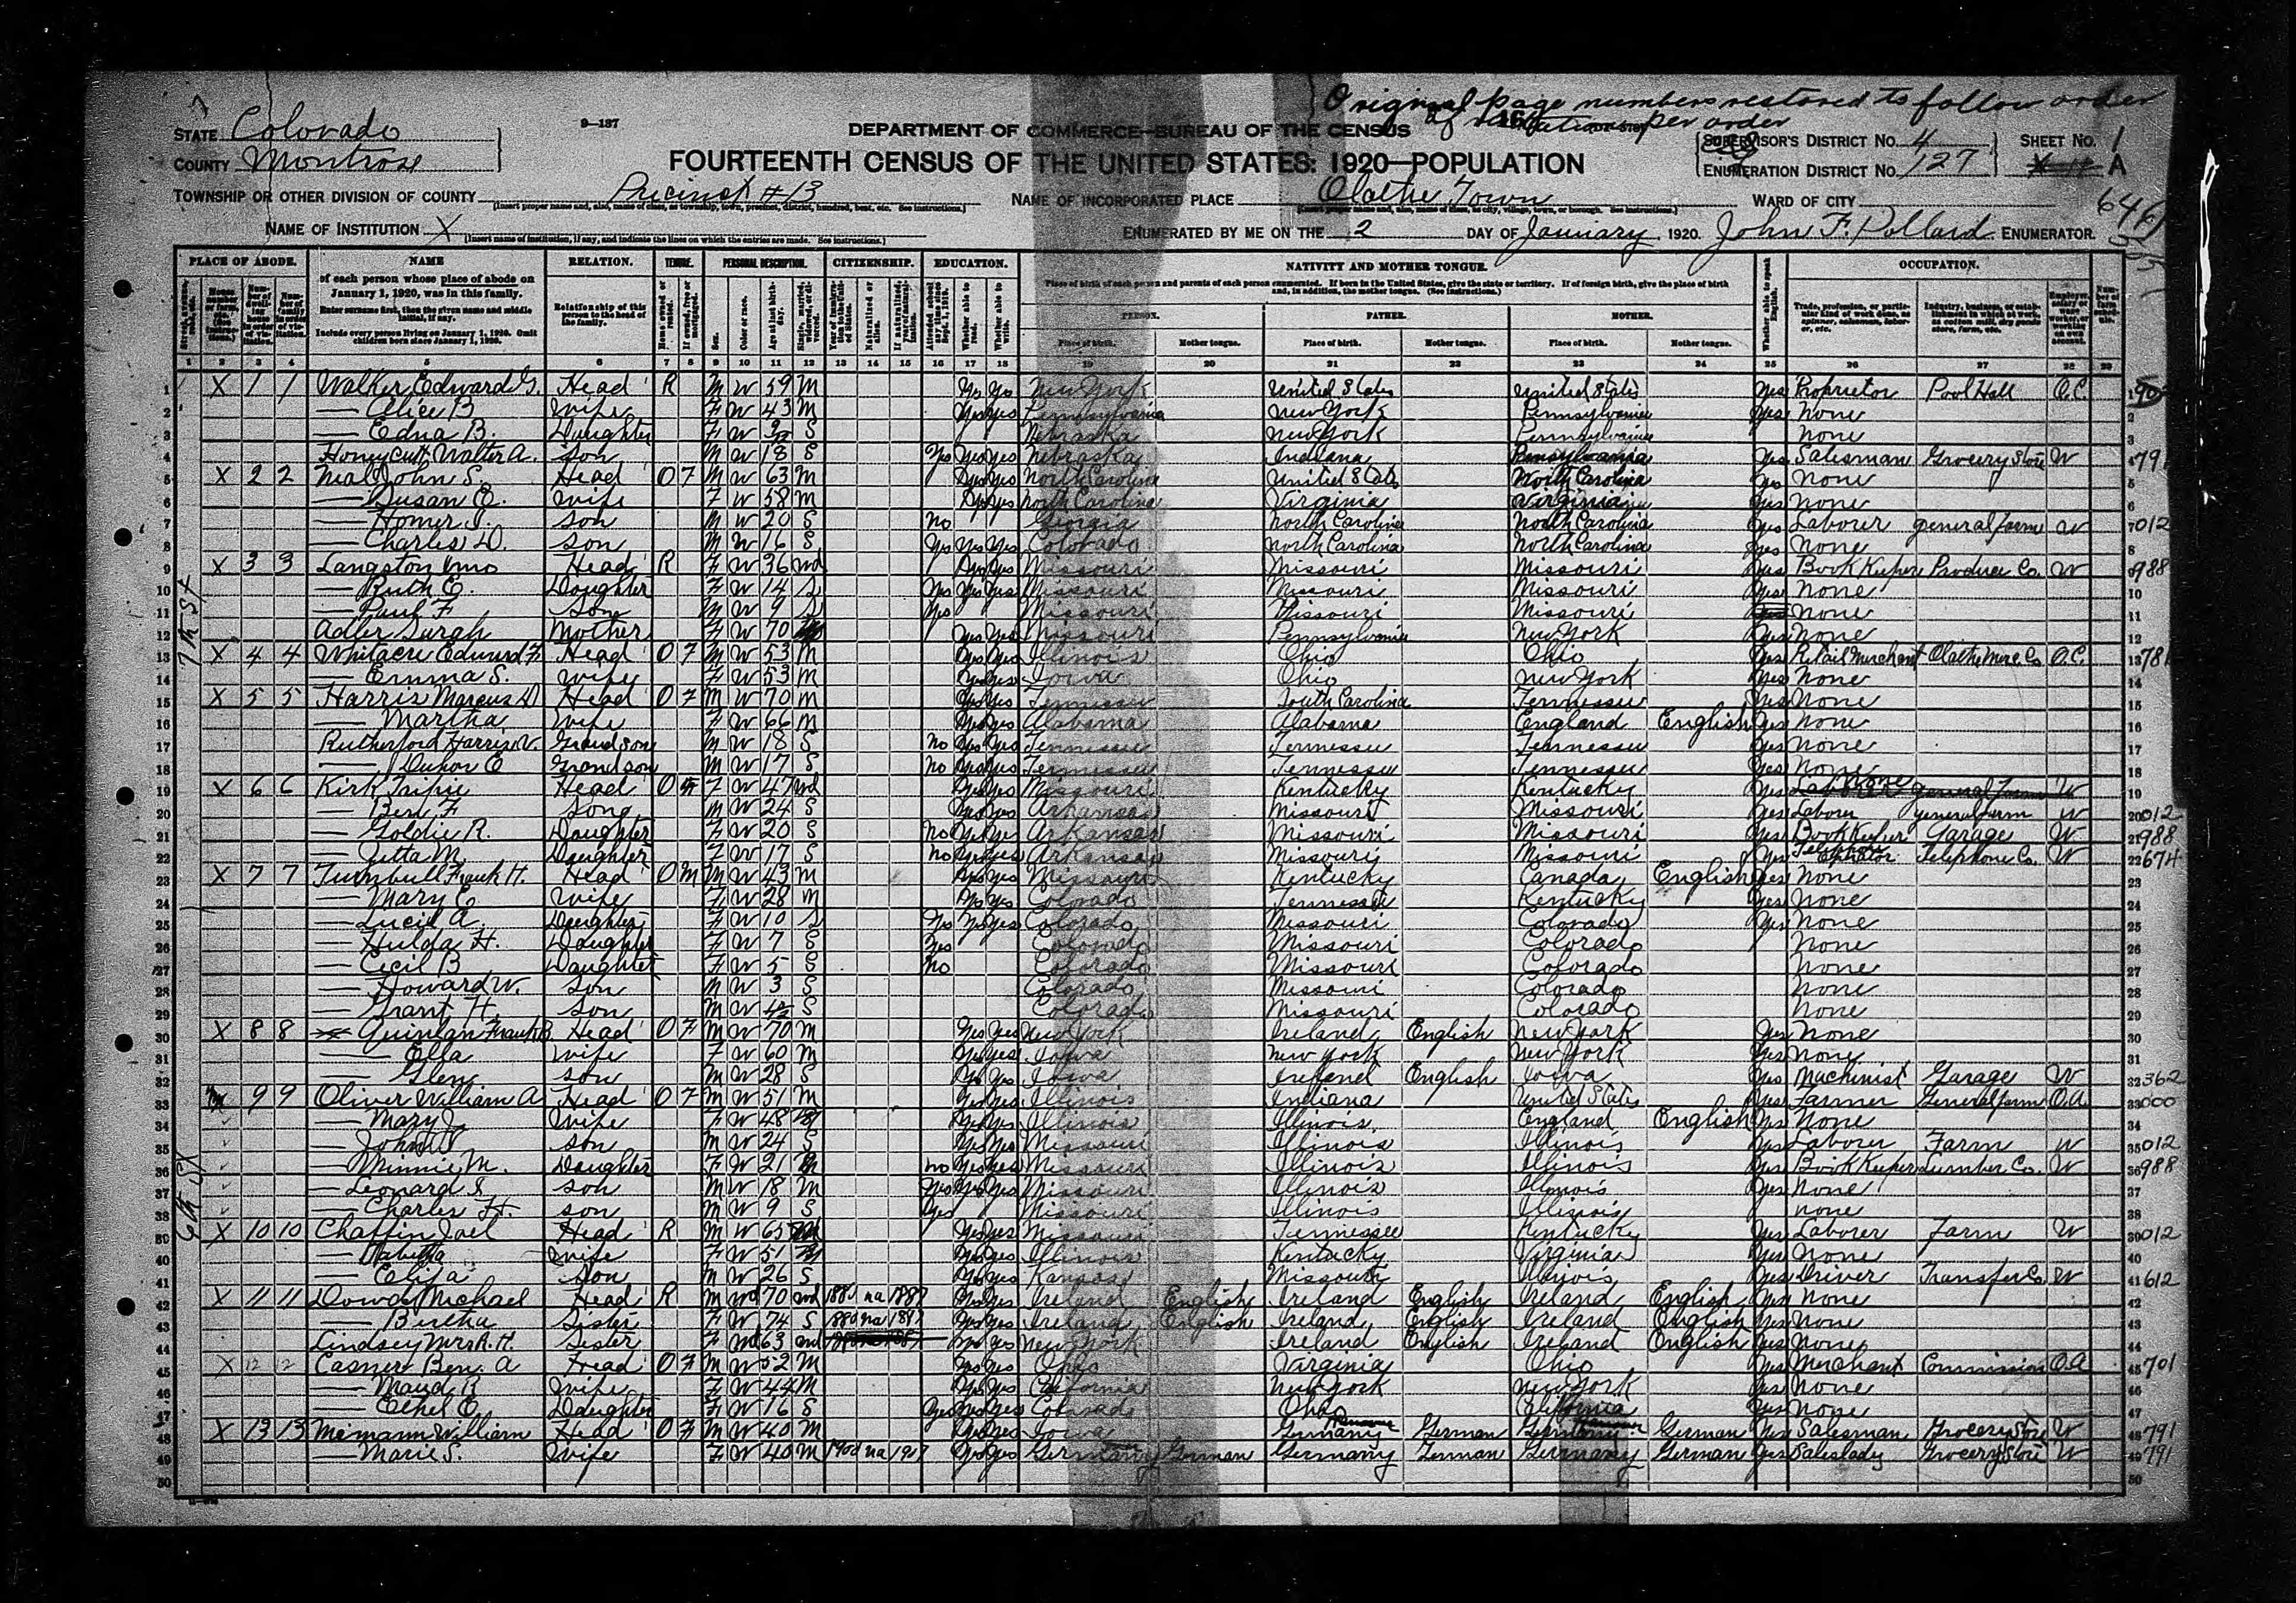 Original page numbers restored to follow order
of visitation per order
STATE Colorado
9-137
DEPARTMENT OF COMMERCE—BUREAU OF THE CENSUS
SUPERVISOR'S DISTRICT No. 4 SHEET No. 1
COUNTY Montrose
FOURTEENTH CENSUS OF THE UNITED STATES: 1920—POPULATION
ENUMERATION DISTRICT No. 127 A
TOWNSHIP OR OTHER DIVISION OF COUNTY Precinct #13 NAME OF INCORPORATED PLACE Olathe Town WARD OF CITY
NAME OF INSTITUTION X ENUMERATED BY ME ON THE 2 DAY OF January, 1920. John F. Pollard ENUMERATOR.
PLACE OF ABODE. NAME RELATION. TENURE. PERSONAL DESCRIPTION. CITIZENSHIP. EDUCATION. NATIVITY AND MOTHER TONGUE. OCCUPATION.
of each person whose place of abode on January 1, 1920, was in this family.
Enter surname first, then the given name and middle initial, if any.
Include every person living on January 1, 1920. Omit children born since January 1, 1920.
Relationship of this person to the head of the family.
Place of birth of each person and parents of each person enumerated. If born in the United States, give the state or territory. If of foreign birth, give the place of birth and, in addition, the mother tongue. (See instructions.)
PERSON. FATHER. MOTHER.
Place of birth. Mother tongue. Place of birth. Mother tongue. Place of birth. Mother tongue.
1 2 3 4 5 6 7 8 9 10 11 12 13 14 15 16 17 18 19 20 21 22 23 24 25 26 27 28 29
1 X 1 1 Walker Edward G. Head R M W 59 M Yes Yes New York United States United States Yes Proprietor Pool Hall O.C. 1
2 — Alice B Wife F W 43 M Yes Yes Pennsylvania New York Pennsylvania Yes None 2
3 — Edna B. Daughter F W S Nebraska New York Pennsylvania None 3
4 Honeycutt Walter A. Son M W 18 S Yes Yes Yes Nebraska Indiana Pennsylvania Yes Salesman Grocery Store W 791
5 X 2 2 Neal John S. Head O F M W 63 M Yes Yes North Carolina United States North Carolina Yes None 5
6 — Susan E. Wife F W 58 M Yes Yes North Carolina Virginia Virginia Yes None 6
7 — Homer S. Son M W 20 S No Georgia North Carolina North Carolina Yes Laborer general farm W 7 012
8 — Charles D. Son M W 16 S Yes Yes Yes Colorado North Carolina North Carolina Yes None 8
9 X 3 3 Langston Head R F W 36 wd Yes Yes Missouri Missouri Missouri Yes Book Keeper Produce Co. W 988
10 — Ruth E. Daughter F W 14 S Yes Yes Yes Missouri Missouri Missouri Yes None 10
11 — Paul F Son M W 9 S Yes Missouri Missouri Missouri None 11
12 Adler Sarah Mother F W 70 Yes Yes Missouri Pennsylvania New York Yes None 12
13 X 4 4 Whitacre Edward F. Head O F M W 53 M Yes Yes Illinois Ohio Ohio Yes Retail Merchant Olathe Merc. Co. O.C. 13 781
14 — Emma S. Wife F W 53 M Yes Yes Iowa Ohio New York Yes None 14
15 X 5 5 Harris Marcus D Head O F M W 70 M Yes Yes Tennessee South Carolina Tennessee Yes None 15
16 — Martha Wife F W 66 M Yes Yes Alabama Alabama England English Yes None 16
17 Rutherford Harris V. Grandson M W 18 S No Yes Yes Tennessee Tennessee Tennessee Yes None 17
18 — E Grandson M W 17 S No Yes Yes Tennessee Tennessee Tennessee Yes None 18
19 X 6 6 Kirk Head O F W 47 wd Yes Yes Missouri Kentucky Kentucky Yes None 19
20 — Ben F Son M W 24 S Yes Yes Arkansas Missouri Missouri Yes Laborer general farm W 20 012
21 — Goldie R. Daughter F W 20 S No Yes Yes Arkansas Missouri Missouri Yes Book Keeper Garage W 21 988
22 — Zetta M. Daughter F W 17 S No Yes Yes Arkansas Missouri Missouri Yes Telephone Operator Telephone Co. W 22 674
23 X 7 7 Turnbull Frank H. Head O M M W 43 M Yes Yes Missouri Kentucky Canada English Yes None 23
24 — Mary E Wife F W 28 M Yes Yes Colorado Tennessee Kentucky Yes None 24
25 — Lucil A. Daughter F W 10 S Yes Yes Yes Colorado Missouri Colorado Yes None 25
26 — Hulda H. Daughter F W 7 S Yes Colorado Missouri Colorado None 26
27 — Cecil B Daughter F W 5 S No Colorado Missouri Colorado None 27
28 — Howard W. Son M W 3 S Colorado Missouri Colorado None 28
29 — Grant H. Son M W S Colorado Missouri Colorado None 29
30 X 8 8 Quinlan Frank B. Head O F M W 70 M Yes Yes New York Ireland English New York Yes None 30
31 — Ella Wife F W 60 M Yes Yes Iowa New York New York Yes None 31
32 — Glen Son M W 28 S Yes Yes Iowa Ireland English Iowa Yes Machinist Garage W 32 362
33 9 9 Oliver William A Head O F M W 51 M Yes Yes Illinois Indiana United States Yes Farmer General farm O.A. 33 000
34 — Mary J. Wife F W 48 Yes Yes Illinois Illinois England English Yes None 34
35 — John V Son M W 24 S Yes Yes Missouri Illinois Illinois Yes Laborer Farm W 35 012
36 — Minnie M. Daughter F W 21 No Yes Yes Missouri Illinois Illinois Yes Book Keeper Lumber Co. W 36 988
37 — Leonard S Son M W 18 M Yes Yes Yes Missouri Illinois Illinois Yes None 37
38 — Charles H. Son M W 9 S Yes Missouri Illinois Illinois None 38
39 X 10 10 Chaffin Joel Head R M W 65 Yes Yes Missouri Tennessee Kentucky Yes Laborer Farm W 39 012
40 — Wife F W 51 Yes Yes Illinois Kentucky Virginia Yes None 40
41 — Elija Son M W 26 S Yes Yes Kansas Missouri Illinois Yes Driver Transfer Co. W 41 612
42 X 11 11 Dowd Michael Head R M W 70 wd na 1887 Yes Yes Ireland English Ireland English Ireland English Yes None 42
43 — Bertha Sister F W 74 S 1880 na Yes Yes Ireland English Ireland English Ireland English Yes None 43
44 Lindsey Mrs. R. H. Sister F W 63 wd Yes Yes New York Ireland English Ireland English Yes None 44
45 X 12 12 Casner Ben. A Head O F M W 52 M Yes Yes Ohio Virginia Ohio Yes Merchant Commission O.A 45 701
46 — Maud B Wife F W 44 M Yes Yes California New York New York Yes None 46
47 — Ethel E. Daughter F W 16 S Yes Yes Yes Colorado Ohio California Yes None 47
48 X 13 13 Meimann William Head O F M W 40 M Yes Yes Iowa Germany German Germany German Yes Salesman Grocery Store W 48 791
49 — Marie S. Wife F W 40 M na Yes Yes Germany German Germany German Germany German Yes Saleslady Grocery Store W 49 791
50 50
7th St
6th St